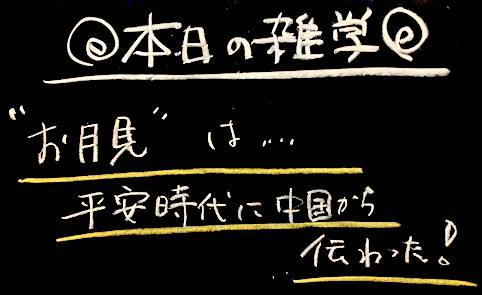 本日の雑学
"お月見"は....
平安時代に中国から
伝わった!